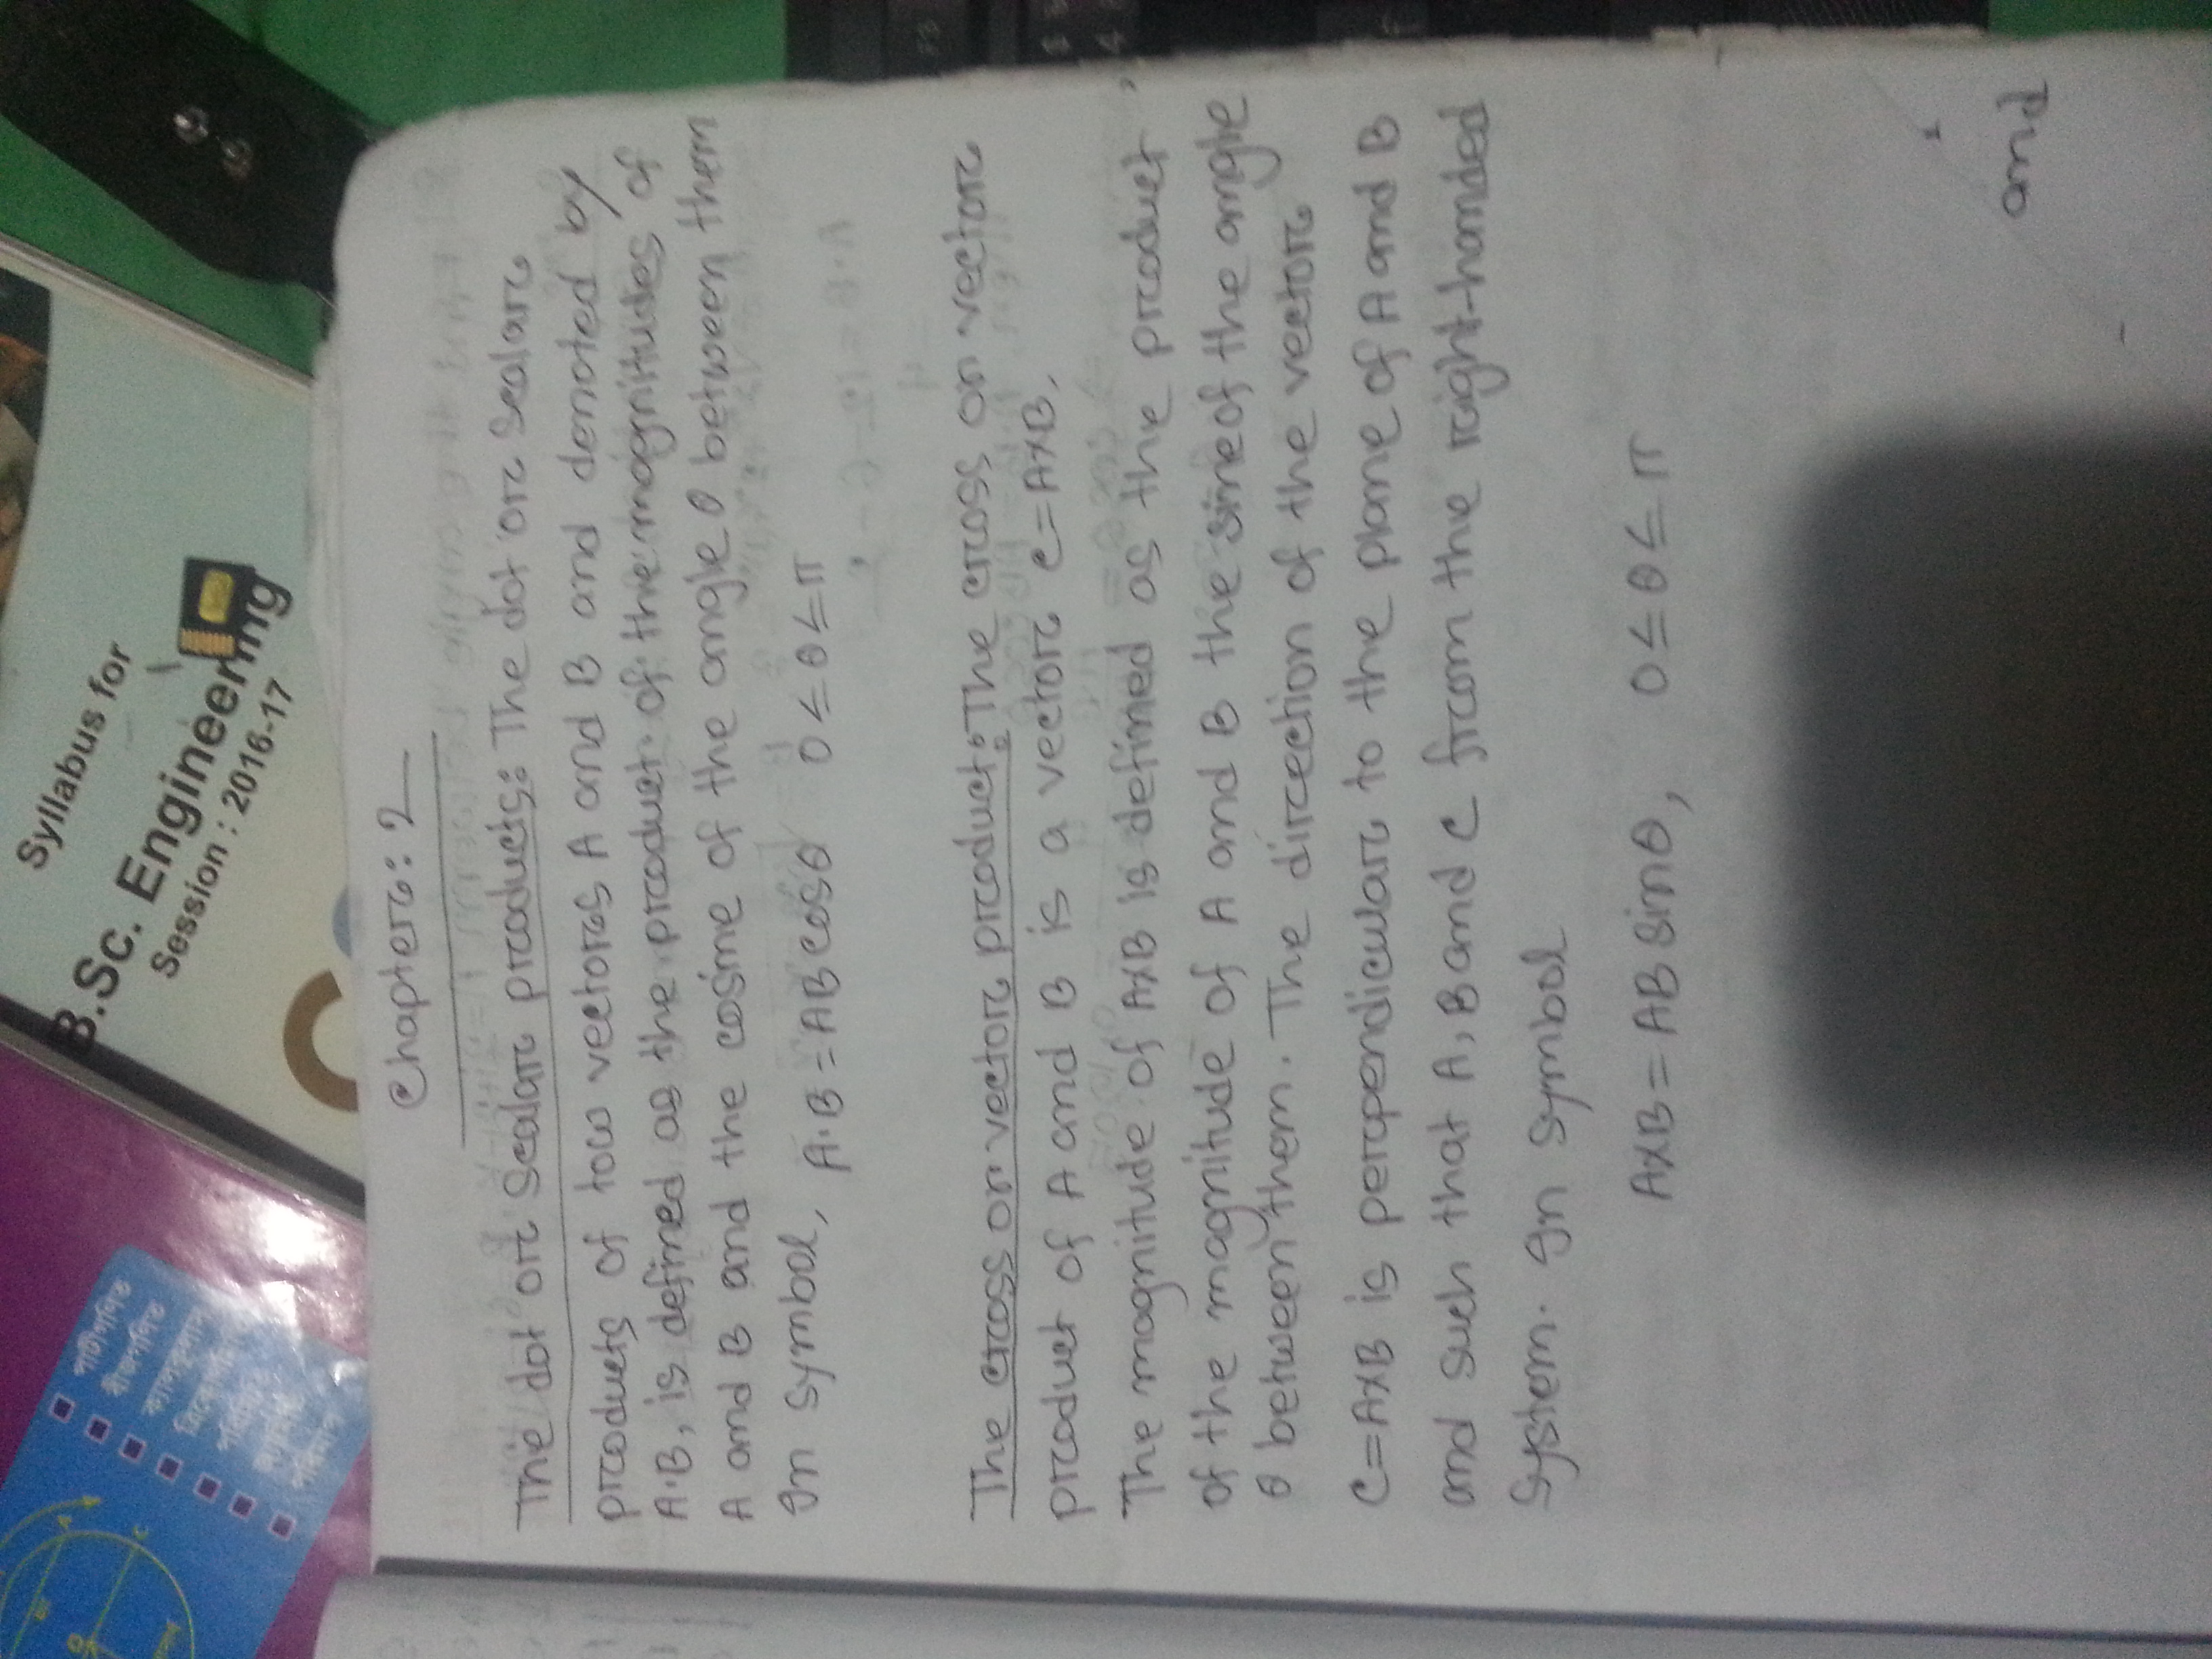 পাটীগণিত
বীজগণিত
Syllabus for
B.Sc. Engineering
Session : 2016-17
Chapter: 2
The dot or Scalar products: The dot or Scalar
products of tow vectors A and B and denoted by
A·B, is defined as the product of the magnitudes of
A and B and the cosine of the angle θ between them
In symbol, A·B = AB cosθ 0 ≤ θ ≤ π
The cross or vector product: The cross or vector
product of A and B is a vector C=A×B,
The magnitude of A×B is defined as the product
of the magnitude of A and B the sine of the angle
θ between them. The direction of the vector
C=A×B is perpendicular to the plane of A and B
and such that A, B and C from the right-handed
System. In symbol
A×B = AB sinθ, 0 ≤ θ ≤ π
and